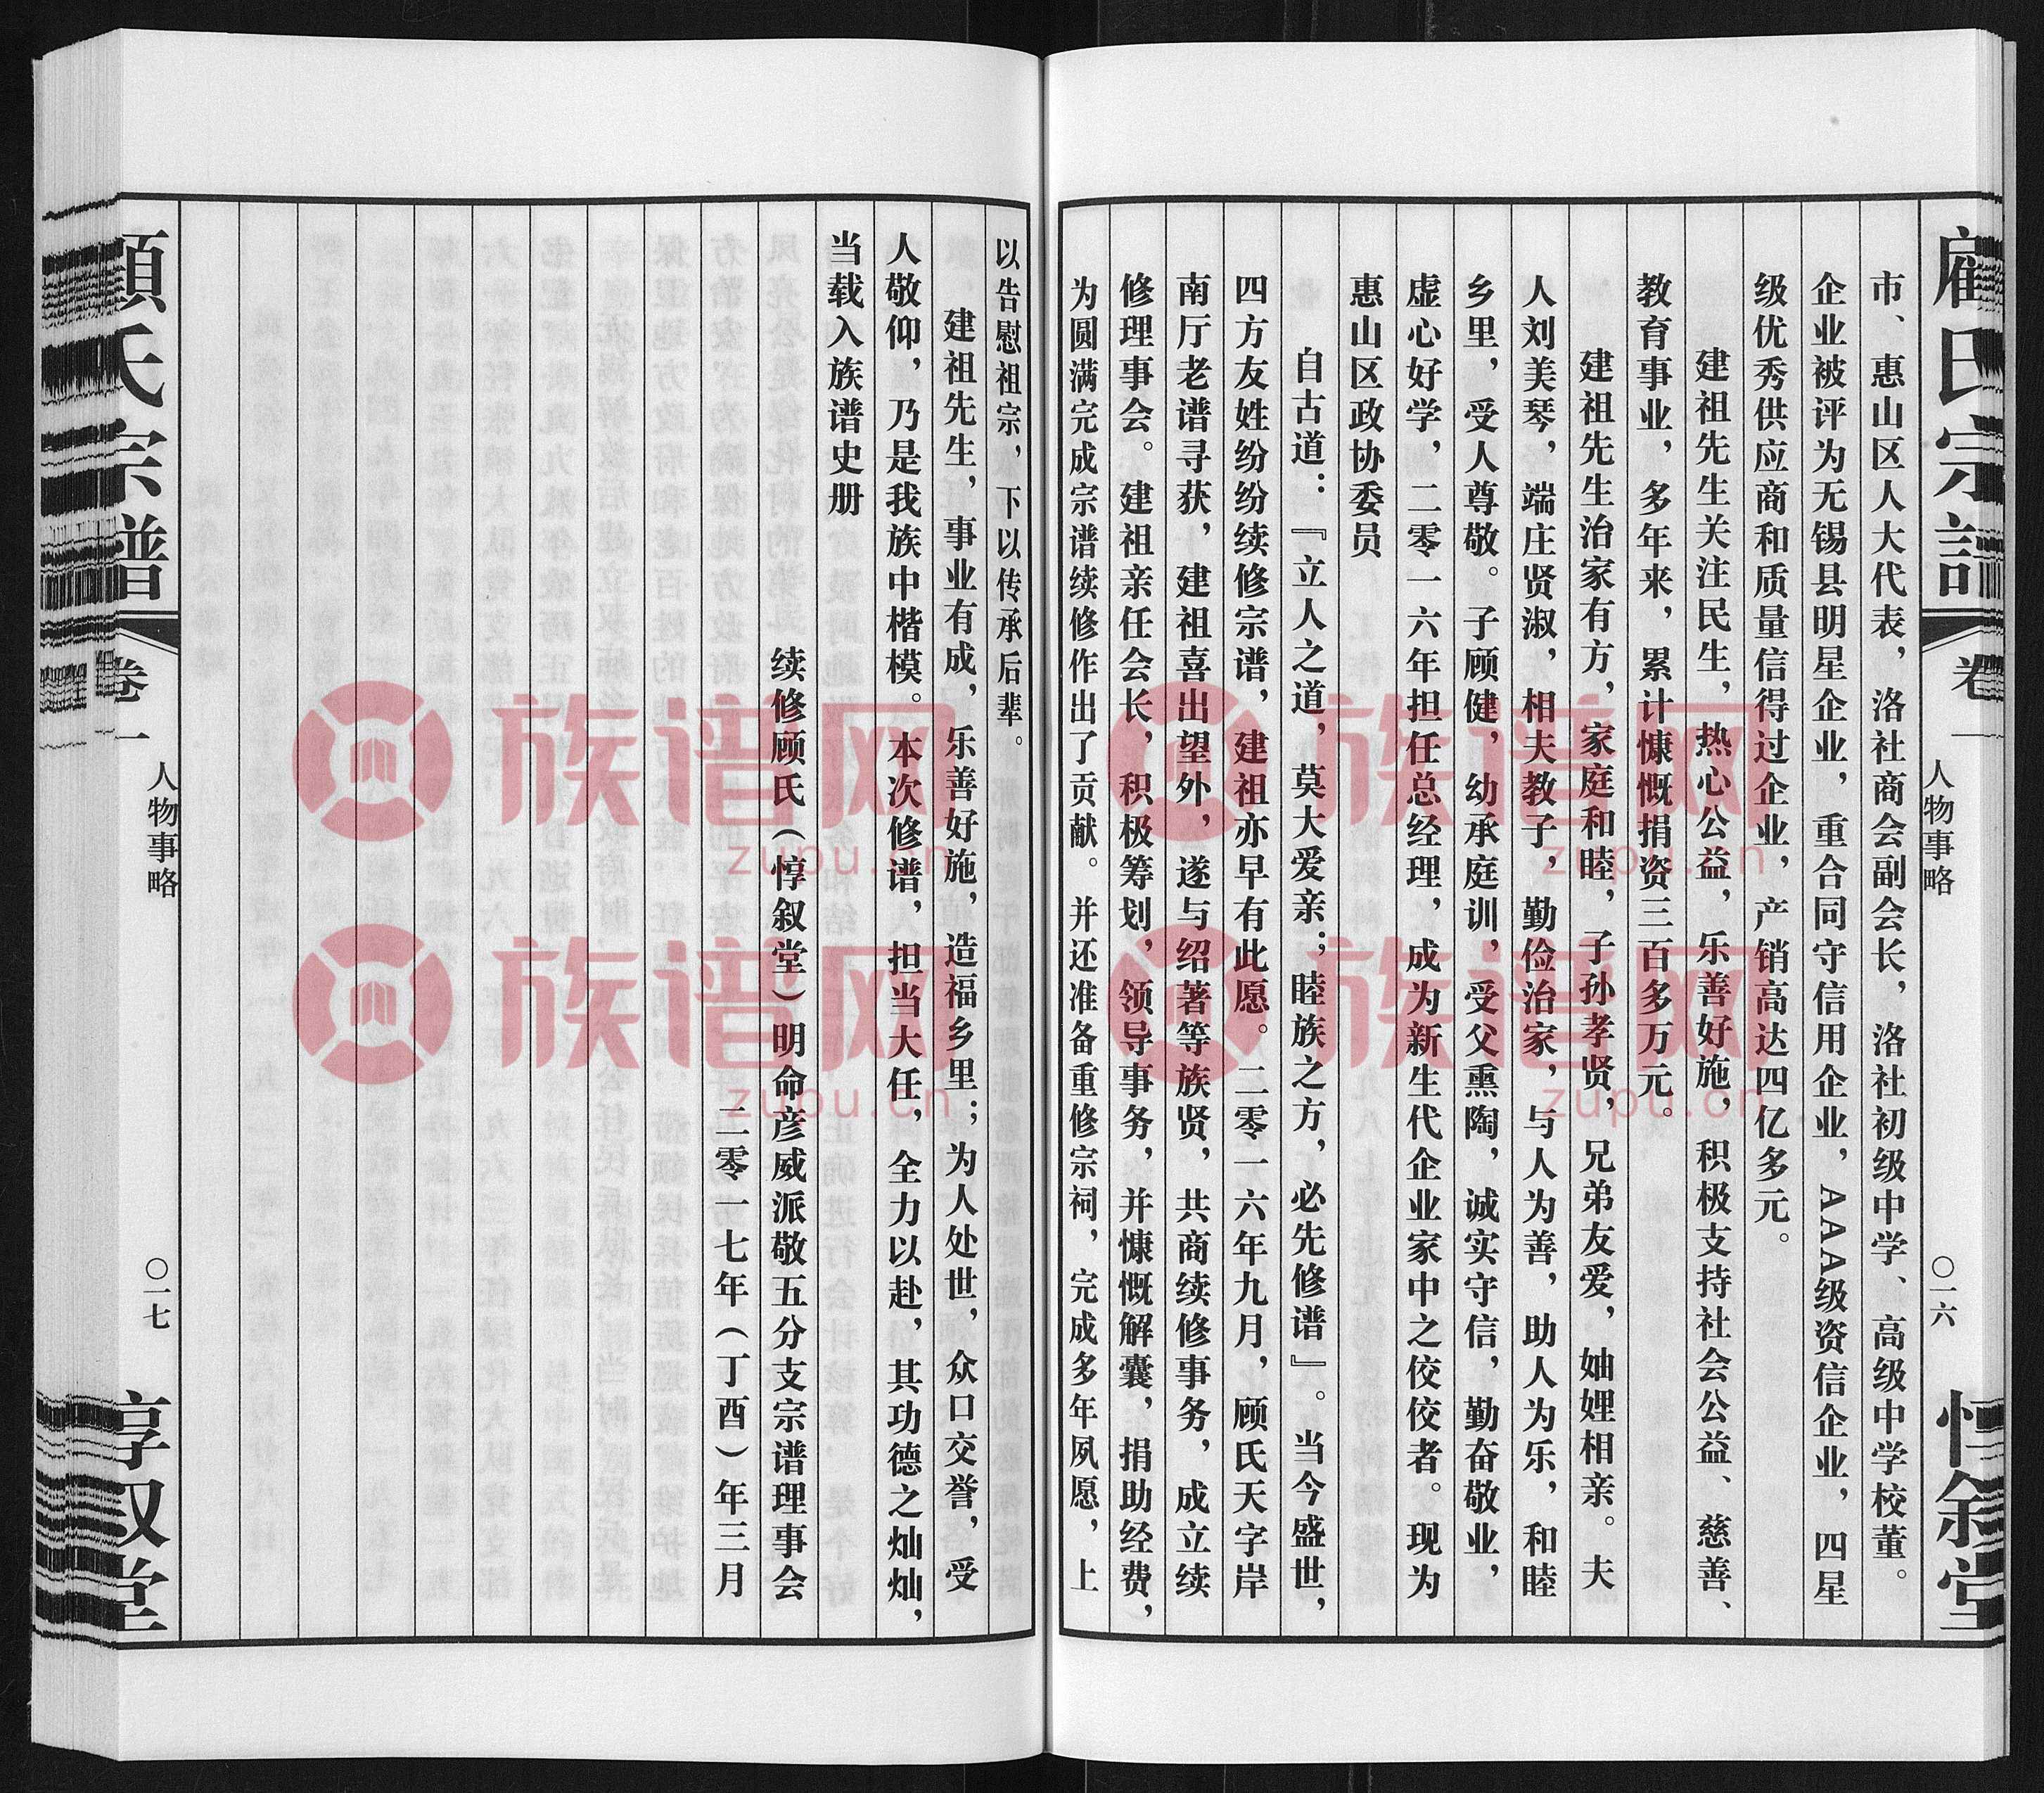 顧氏宗譜
卷一
人物事略
〇一六
惇叙堂
市、惠山区人大代表，洛社商会副会长，洛社初级中学、高级中学校董。
企业被评为无锡县明星企业，重合同守信用企业，AAA级资信企业，四星
级优秀供应商和质量信得过企业，产销高达四亿多元。
建祖先生关注民生，热心公益，乐善好施，积极支持社会公益、慈善、
教育事业，多年来，累计慷慨捐资三百多万元。
建祖先生治家有方，家庭和睦，子孙孝贤，兄弟友爱，妯娌相亲。夫
人刘美琴，端庄贤淑，相夫教子，勤俭治家，与人为善，助人为乐，和睦
乡里，受人尊敬。子顾健，幼承庭训，受父熏陶，诚实守信，勤奋敬业，
虚心好学，二零一六年担任总经理，成为新生代企业家中之佼佼者。现为
惠山区政协委员
自古道：『立人之道，莫大爱亲；睦族之方，必先修谱』。当今盛世，
四方友姓纷纷续修宗谱，建祖亦早有此愿。二零一六年九月，顾氏天字岸
南厅老谱寻获，建祖喜出望外，遂与绍著等族贤，共商续修事务，成立续
修理事会。建祖亲任会长，积极筹划，领导事务，并慷慨解囊，捐助经费，
为圆满完成宗谱续修作出了贡献。并还准备重修宗祠，完成多年夙愿，上
以告慰祖宗，下以传承后辈。
建祖先生，事业有成，乐善好施，造福乡里；为人处世，众口交誉，受
人敬仰，乃是我族中楷模。本次修谱，担当大任，全力以赴，其功德之灿灿，
当载入族谱史册
续修顾氏（惇叙堂）明命彦威派敬五分支宗谱理事会
二零一七年（丁酉）年三月
顧氏宗譜
卷一
人物事略
〇一七
惇叙堂
族谱网
zupu.cn
族谱网
zupu.cn
族谱网
zupu.cn
族谱网
zupu.cn